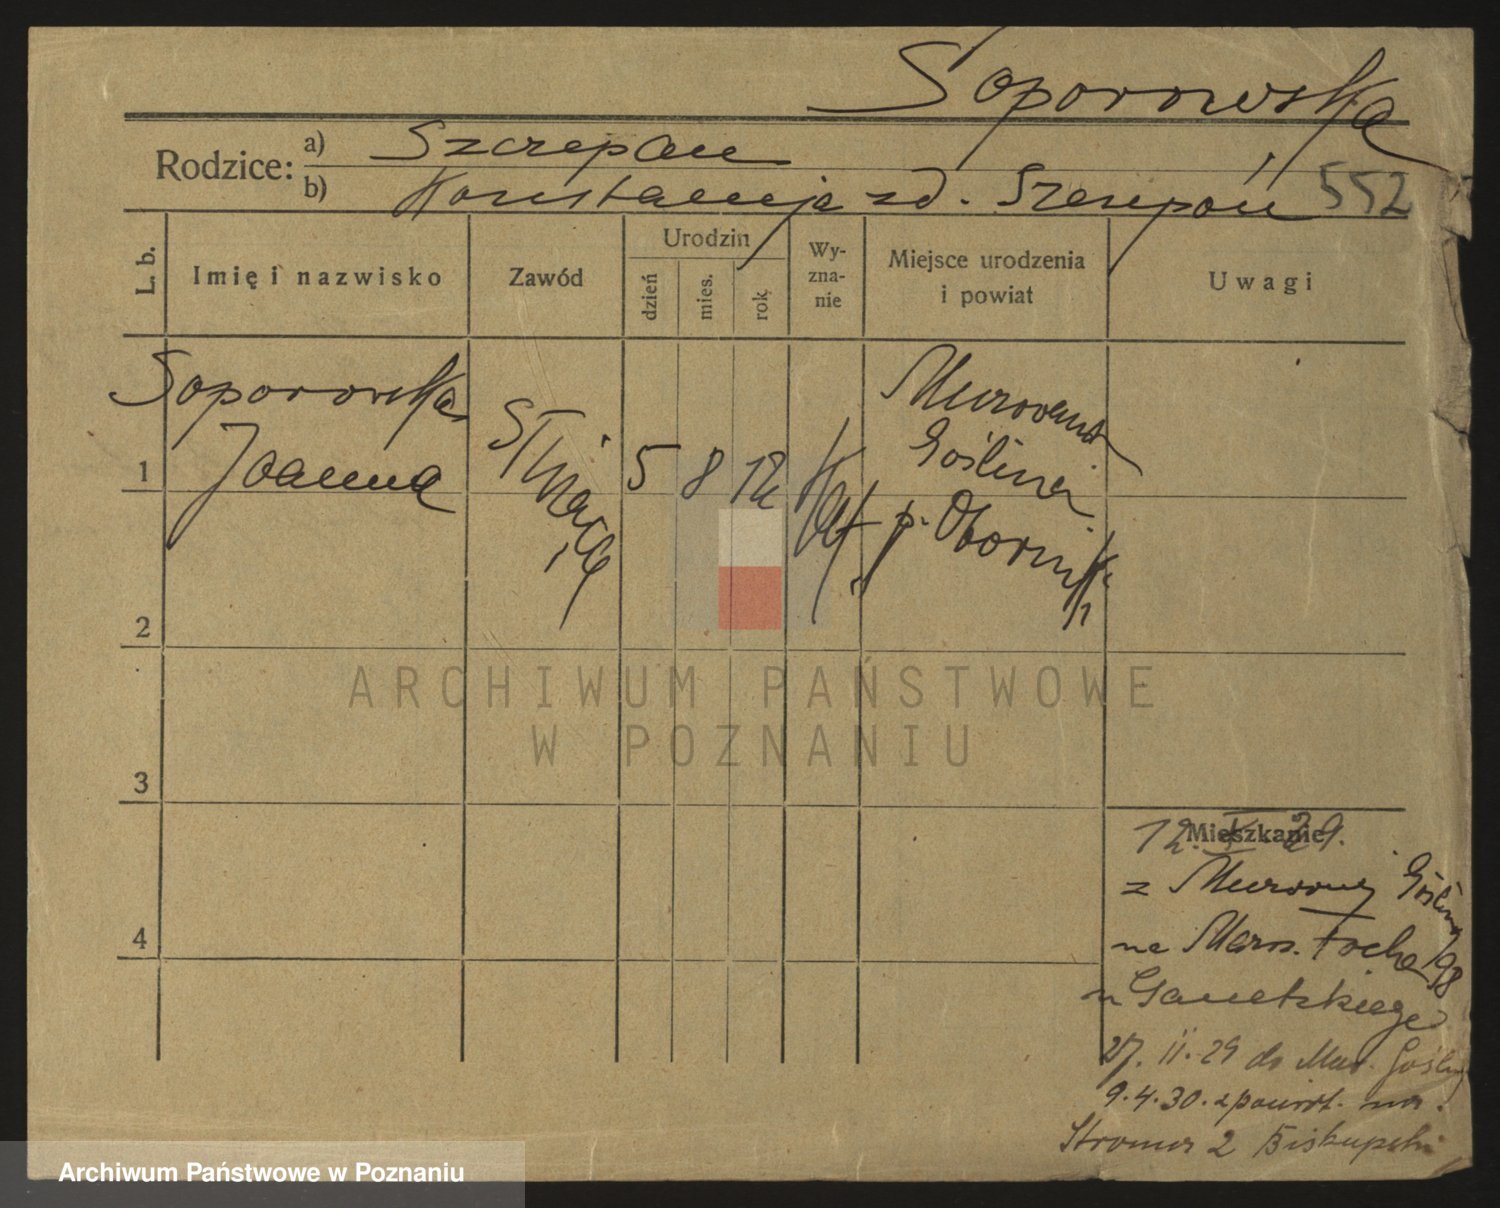 Soporowska
Rodzice: a) Szczepan
b) Konstancja zd. Szczepań 552
L. b. Imię i nazwisko Zawód Urodzin dzień mies. rok Wyznanie Miejsce urodzenia i powiat Uwagi
1 Soporowska Joanna Służąca 5 8 12 Kat Murowana Goślina p. Oborniki
2
3
4
Mieszkanie
12. 29.
z Murowanej Gośliny
na Mars. Focha 98
u
27. II. 29 do Mur. Gośliny
9.4.30. z powrot. na
Stroma 2 Biskupski
ARCHIWUM PAŃSTWOWE
W POZNANIU
Archiwum Państwowe w Poznaniu